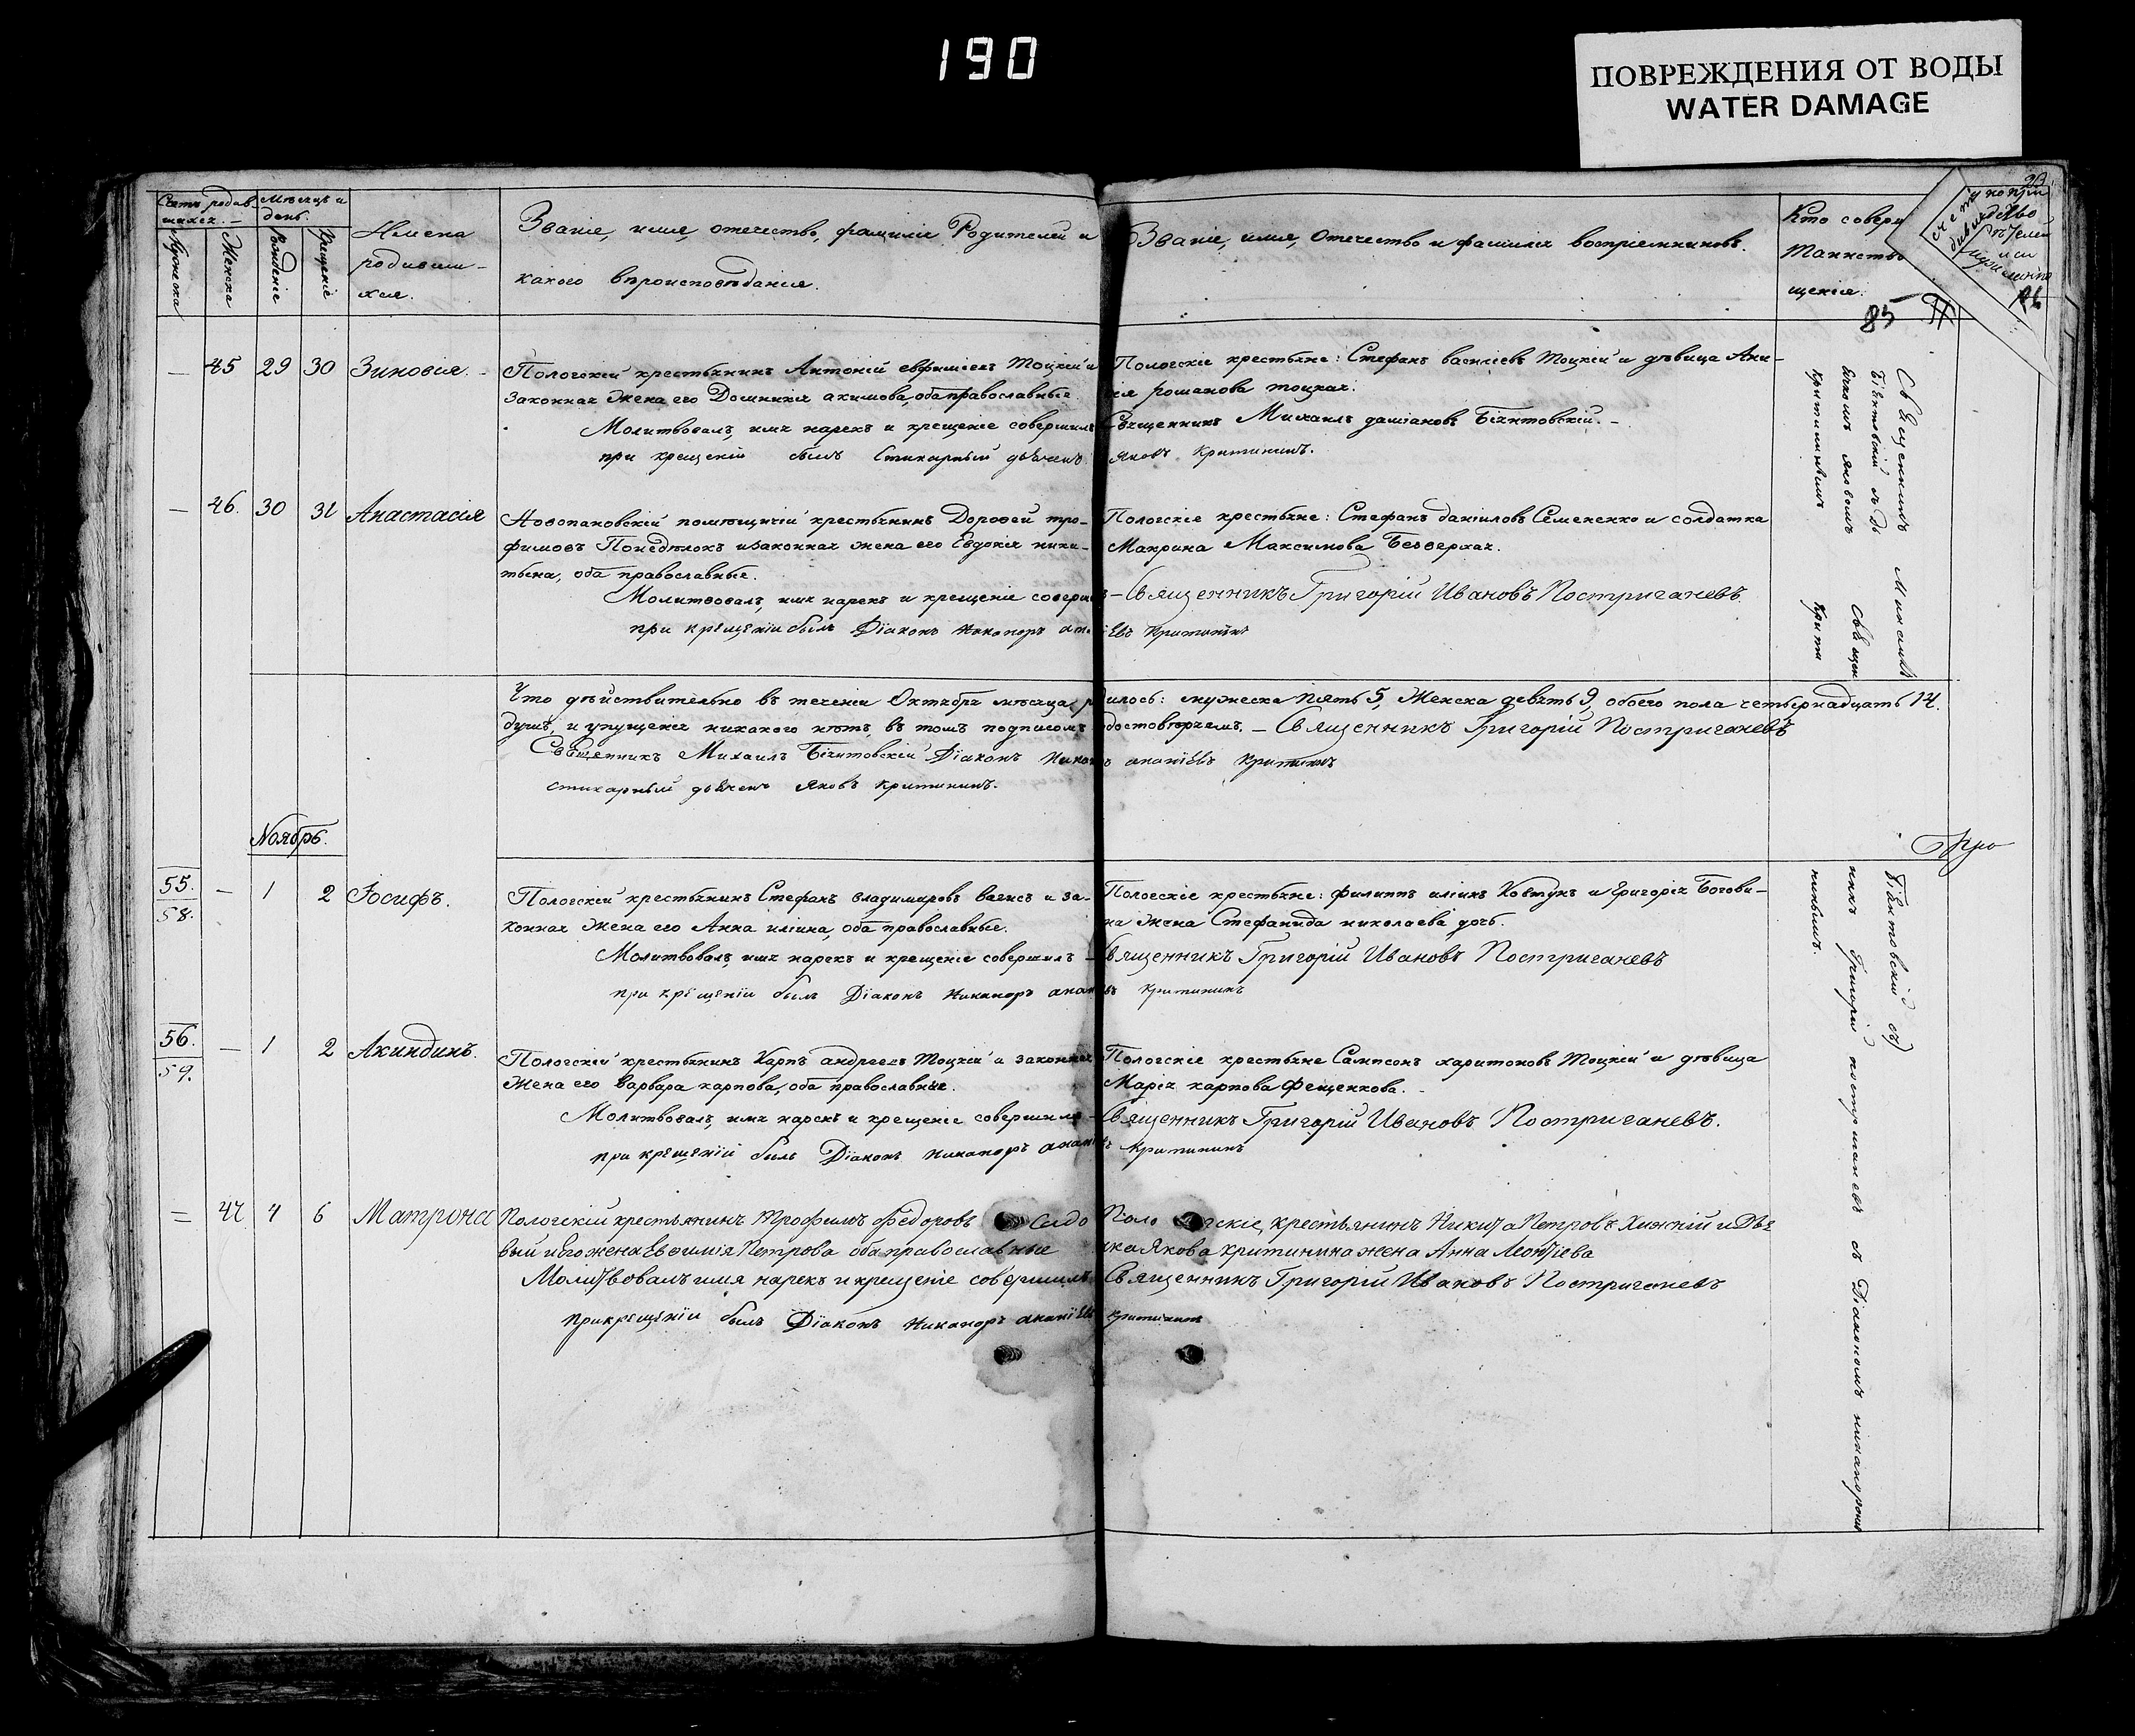 190
ПОВРЕЖДЕНИЯ ОТ ВОДЫ
WATER DAMAGE
Мѣсяцъ и
день.
Мужеска
Женска
Рожденіе
Крещеніе
Имена
родивши-
хся.
Званіе, имя, отечество, фамиліе Родителей и
какого вѣроисповѣданія.
Званіе, имя, Отечество и фамилія воспріемниковъ.
Кто совер
Таинств
щенія.
85
— 45 29 30 Зиновія.
Пологскій крестьянинъ Антоній евфиміевъ Тоцкій и
законная Жена его Домникія акимова, оба православные.
Молитвовалъ, имя нарекъ и крещеніе совершилъ
при крещеніи былъ Стихарный дьячекъ
Пологскіе крестьяне: Стефанъ василіевъ Тоцкій и дѣвица Ани-
сія романова тоцкая.
Священникъ Михаилъ даміановъ Бѣлитовскій. –
Яковъ Критининъ.
— 46. 30 31 Анастасія
Новопановскій помѣщичій крестьянинъ Дорофей тро-
фимовъ Понедѣлокъ и законная жена его Евдокія ники-
тьина, оба православные.
Молитвовалъ, имя нарекъ и крещеніе совери
при крещеніи былъ Діаконъ Никаноръ
Пологскіе крестьяне: Стефанъ даніиловъ Семененко и солдатка
Макрина Максимова Безверхая.
– Священникъ Григорій Ивановъ Постриганевъ.
Критининъ
Что дѣйствительно въ теченіи Октября мѣсяца родилось: мужеска пять 5, Женска девять 9, обоего пола четырнадцать 14.
душъ, и упущенія никакого нѣтъ, въ томъ подписомъ удостовѣряемъ. – Священникъ Григорій Постриганевъ
Священникъ Михаилъ Діаконъ Никаноръ ананіевъ Критининъ
стихарный дьячекъ Яковъ критининъ.
Ноябрь.
55. — 1 2 Іосифъ.
58.
Пологскій крестьянинъ Стефанъ владимировъ и за-
конная Жена его Анна иліина, оба православные.
Молитвовалъ, имя нарекъ и крещеніе совершилъ –
при крещеніи былъ Діаконъ Никаноръ анан
Пологскіе крестьяне: филиппъ иліинъ Ковтунъ и Григорія Богови-
на Жена Стефанида николаева дочь.
Священникъ Григорій Ивановъ Постриганевъ
Критининъ
56. — 1 2 Акиндинъ.
59.
Пологскій крестьянинъ Карпъ андреевъ Тоцкій и законная
Жена его варвара карпова, оба православные.
Молитвовалъ, имя нарекъ и крещеніе совершилъ –
при крещеніи былъ Діаконъ Никаноръ анані
Пологскіе крестьяне Сампсонъ харитоновъ Тоцкій и дѣвица
Марія карпова Фещенкова. –
Священникъ Григорій Ивановъ Постриганевъ.
Критининъ
= 47 4 6 Матрона
Пологскій крестьянинъ Трофимъ Федоровъ Садо
вый и Его жена Евфимія Петрова оба православные
Молитвовалъ имя нарекъ и крещеніе совершилъ
при крещеніи былъ Діаконъ Никаноръ ананіевъ
Пологскіе, крестьянинъ Никита Петровъ Хижній и Дья
чка Якова Критинина жена Анна Леонтіева
Священникъ Григорій Ивановъ Постриганевъ
Критининъ
Священникъ Михаилъ
Яковомъ
Критининымъ
никъ Григорій Постриганевъ съ Діакономъ Никаноромъ